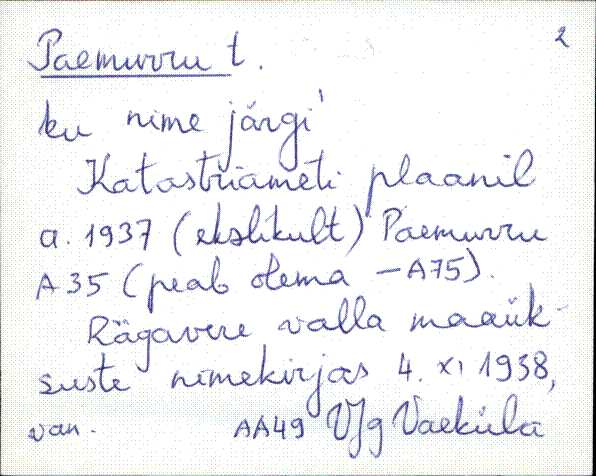 2
Paemurru t.
ku nime järgi'
Katastriameti plaanil
a. 1937 (ekslikult) Paemurru
A35 (peab olema -A75).
Rägavere valla maaük-
suste nimekirjas 4. XI 1938,
van. AA49 VJg Vaeküla